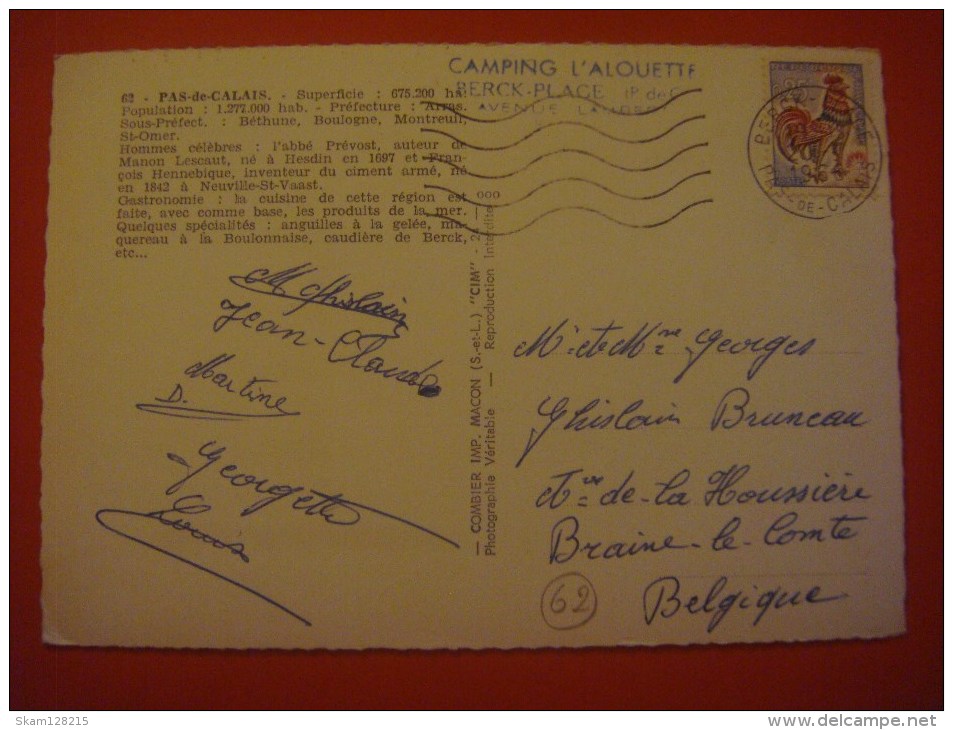 CAMPING L'ALOUETTE
BERCK-PLAGE (P. de C.)
AVENUE
62 - PAS-de-CALAIS. - Superficie : 675.200 ha.
Population : 1.277.000 hab. - Préfecture : Arras.
Sous-Préfect. : Béthune, Boulogne, Montreuil,
St-Omer.
Hommes célèbres : l'abbé Prévost, auteur de
Manon Lescaut, né à Hesdin en 1697 et Fran-
çois Hennebique, inventeur du ciment armé, né
en 1842 à Neuville-St-Vaast.
Gastronomie : la cuisine de cette région est
faite, avec comme base, les produits de la mer.
Quelques spécialités : anguilles à la gelée, ma-
quereau à la Boulonnaise, caudière de Berck,
etc...
M Ghislain
Jean-Claude
Martine
D.
Georgette
Louis
— COMBIER IMP. MACON (S.-et-L.) "CIM" .
Photographie Véritable — Reproduction Interdite
BERCK-PLAGE
PAS-DE-CALAIS
Mr et Mme Georges
Ghislain Bruneau
de-la Houssière
Braine-le-Comte
Belgique
62
Skam128215
delcampe.net